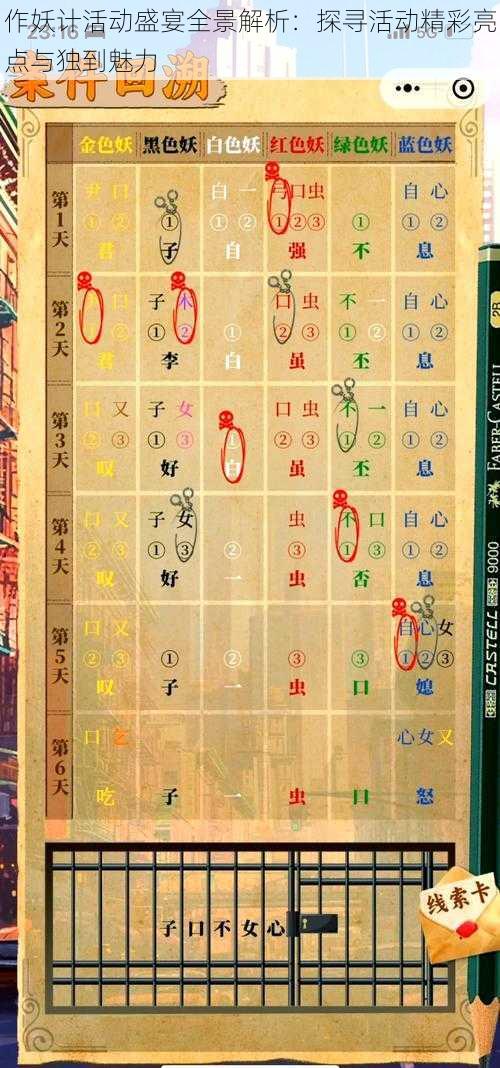 作妖计活动盛宴全景解析：探寻活动精彩亮
点与独到魅力
23:16
5G
案件回溯
金色妖 黑色妖 白色妖 红色妖 绿色妖 蓝色妖
第1天
尹 口 白 一 弓 口 虫 自 心
① ② ① ① ② ① ② ③ ① ① ②
君 子 自 强 不 息
第2天
口 子 木 口 虫 不 一 自 心
② ① ② ① ② ③ ① ② ① ②
君 李 白 虽 丕 息
第3天
口 又 子 女 口 虫 不 一 自 心
② ③ ① ③ ① ② ③ ① ② ① ②
叹 好 白 虽 丕 息
第4天
口 又 子 女 虫 不 口 自 心
② ③ ① ③ ② ③ ① ③ ① ②
叹 好 一 虫 否 息
第5天
口 又 自 心 女
② ③ ① ② ③ ③ ① ② ③
叹 子 一 虫 口 媳
第6天
口 乞 心 女 又
吃 子 一 虫 口 怒
子 口 不 女 心
线索卡
2B
FABER-CASTELL
CASTELL 9000